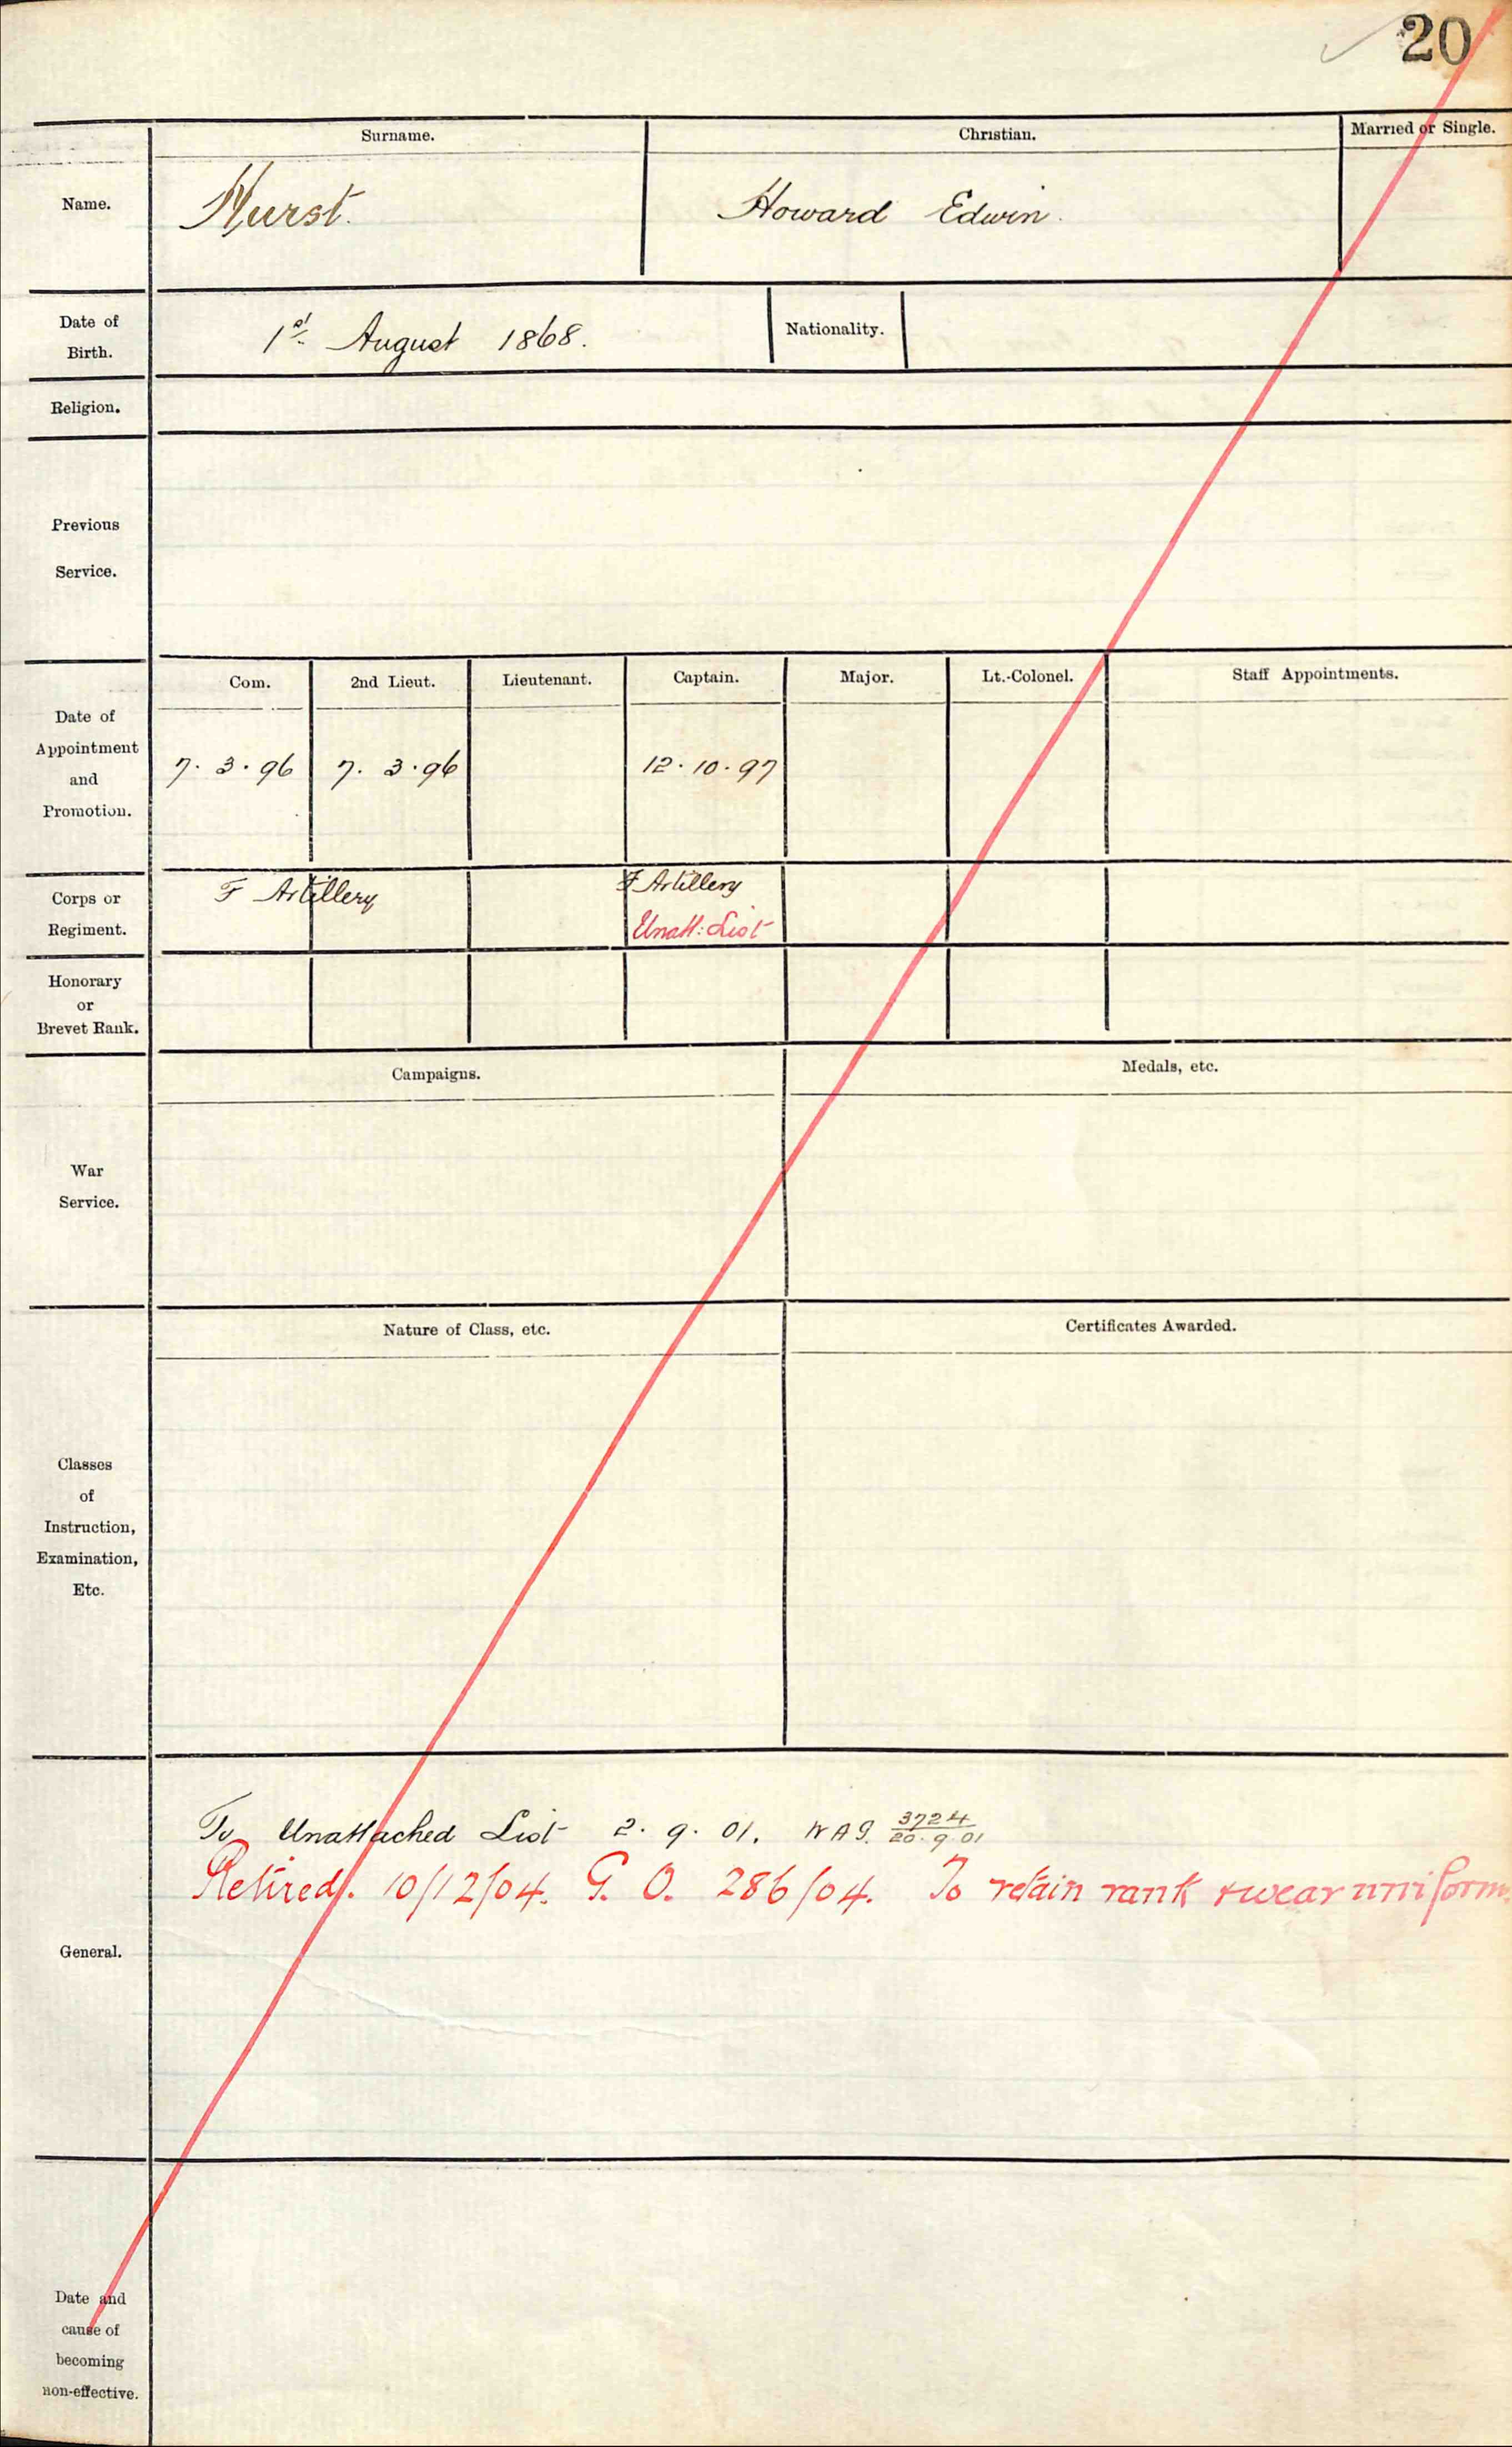 20
Surname. Christian. Married or Single.
Name. Hurst. Howard Edwin.
Date of Birth. 1st August 1868. Nationality.
Religion.
Previous Service.
Com. 2nd Lieut. Lieutenant. Captain. Major. Lt.-Colonel. Staff Appointments.
Date of Appointment and Promotion. 7.3.96 7.3.96 12.10.97
Corps or Regiment. F Artillery F Artillery
Unatt: List
Honorary or Brevet Rank.
Campaigns. Medals, etc.
War Service.
Nature of Class, etc. Certificates Awarded.
Classes of Instruction, Examination, Etc.
To Unattached List 2.9.01. WAG. 3724/20.9.01
Retired. 10/12/04. G.O. 286/04. To retain rank & wear uniform
General.
Date and cause of becoming non-effective.